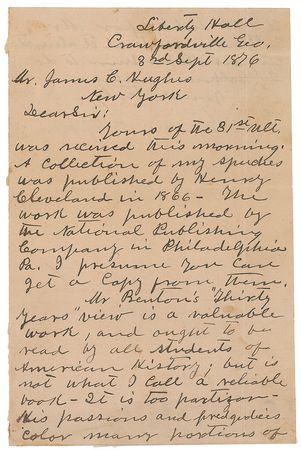 Liberty Hall
Crawfordville Geo.
3rd Sept 1876
Mr. James C. Hughes
New York
Dear Sir:
Yours of the 31st Ult.
was received this morning.
A collection of my speeches
was published by Henry
Cleveland in 1866 - The
work was published by
the National Publishing
Company in Philadelphia
Pa. I presume you can
get a copy from them.
Mr Benton's "Thirty
Years" view is a valuable
work, and ought to be
read by all students of
American History; but is
not what I call a reliable
book - It is too partizan -
His passions and predgedices
color many portions of